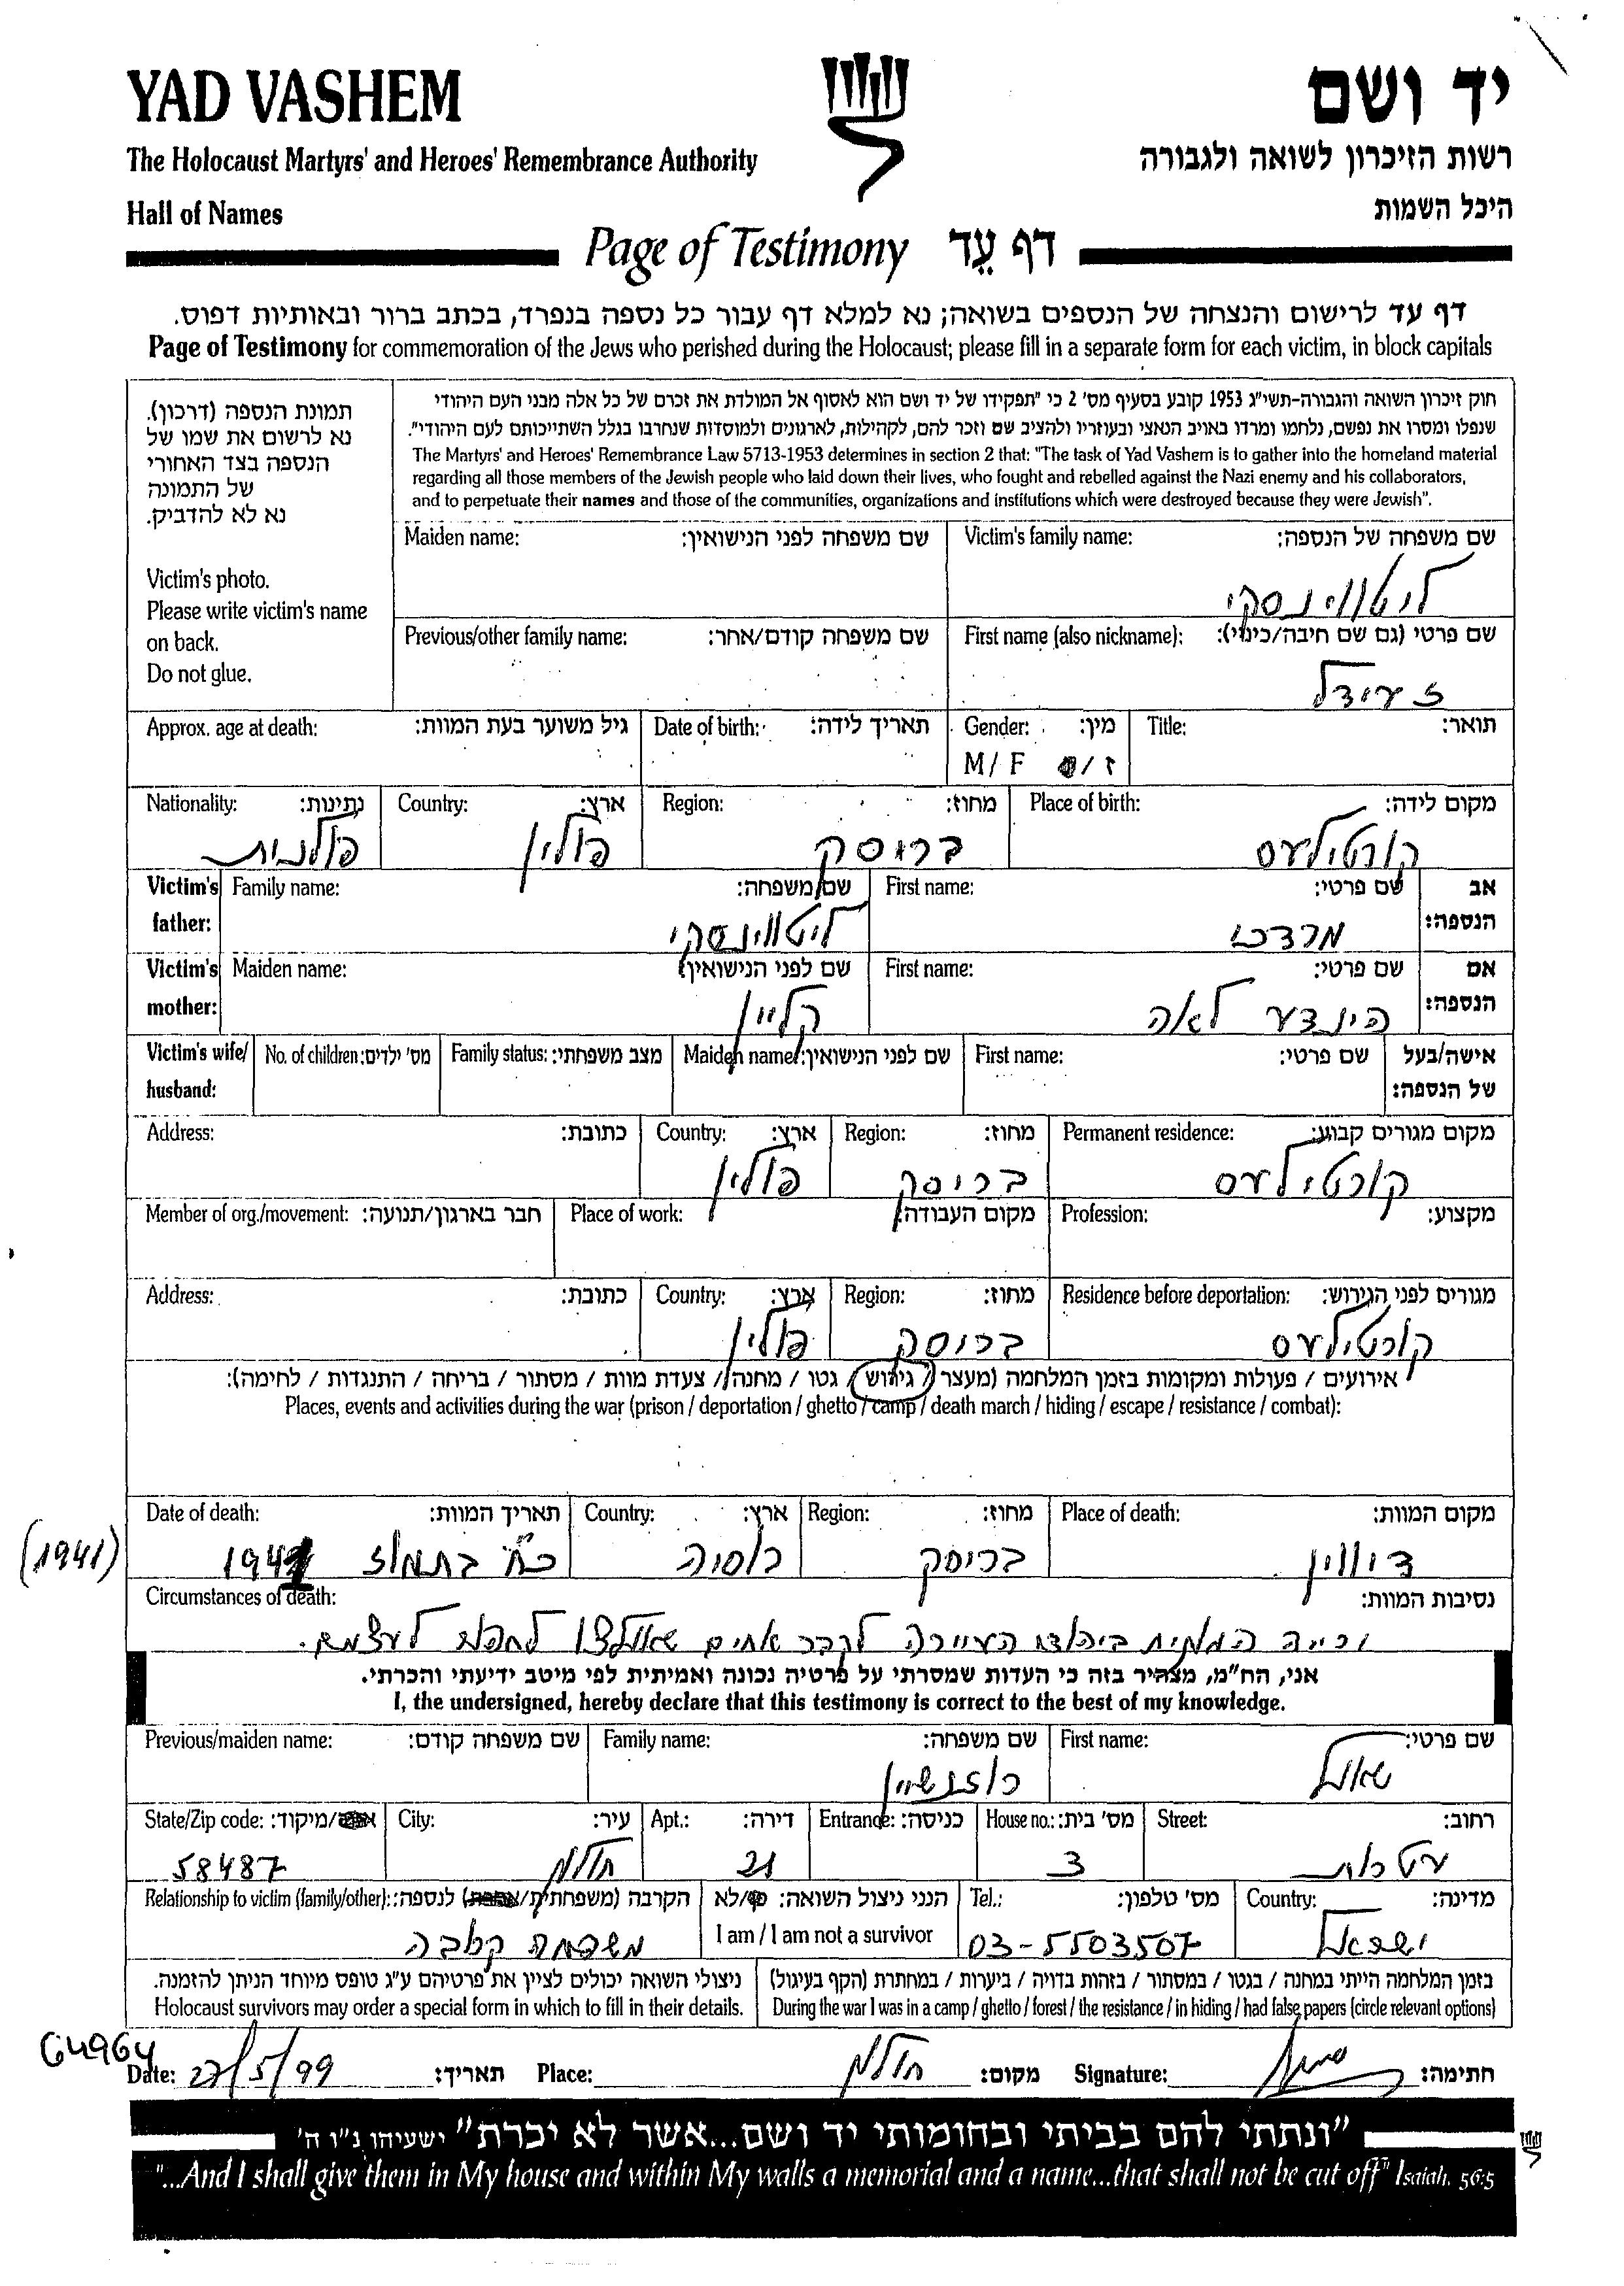 YAD VASHEM
יד ושם
The Holocaust Martyrs' and Heroes' Remembrance Authority
רשות הזיכרון לשואה ולגבורה
Hall of Names
היכל השמות
Page of Testimony דף עֵד
דף עד לרישום והנצחה של הנספים בשואה; נא למלא דף עבור כל נספה בנפרד, בכתב ברור ובאותיות דפוס.
Page of Testimony for commemoration of the Jews who perished during the Holocaust; please fill in a separate form for each victim, in block capitals
חוק זיכרון השואה והגבורה-תשי"ג 1953 קובע בסעיף מס' 2 כי "תפקידו של יד ושם הוא לאסוף אל המולדת את זכרם של כל אלה מבני העם היהודי
שנפלו ומסרו את נפשם, נלחמו ומרדו באויב הנאצי ובעוזריו ולהציב שם וזכר להם, לקהילות, לארגונים ולמוסדות שנחרבו בגלל השתייכותם לעם היהודי".
The Martyrs' and Heroes' Remembrance Law 5713-1953 determines in section 2 that: "The task of Yad Vashem is to gather into the homeland material
regarding all those members of the Jewish people who laid down their lives, who fought and rebelled against the Nazi enemy and his collaborators,
and to perpetuate their names and those of the communities, organizations and institutions which were destroyed because they were Jewish".
תמונת הנספה (דרכון).
נא לרשום את שמו של
הנספה בצד האחורי
של התמונה
נא לא להדביק.
Victim's photo.
Please write victim's name
on back.
Do not glue.
Maiden name: שם משפחה לפני הנישואין: Victim's family name: שם משפחה של הנספה:
ליטווינסקי
Previous/other family name: שם משפחה קודם/אחר: First name (also nickname): שם פרטי (גם שם חיבה/כינוי):
זיידל
Approx. age at death: גיל משוער בעת המוות: Date of birth: תאריך לידה: Gender: מין: Title: תואר:
M / F ז/
Nationality: נתינות: Country: ארץ: Region: מחוז: Place of birth: מקום לידה:
פולנית פולין בריסק קורטילעס
Victim's father: Family name: שם משפחה: First name: שם פרטי: אב הנספה:
ליטווינסקי מרדכי
Victim's mother: Maiden name: שם לפני הנישואין: First name: שם פרטי: אם הנספה:
קליין הינדע לאה
Victim's wife/ husband: No. of children: מס' ילדים: Family status: מצב משפחתי: Maiden name: שם לפני הנישואין: First name: שם פרטי: אישה/בעל של הנספה:
Address: כתובת: Country: ארץ: Region: מחוז: Permanent residence: מקום מגורים קבוע:
פולין בריסק קורטילעס
Member of org./movement: חבר בארגון/תנועה: Place of work: מקום העבודה: Profession: מקצוע:
Address: כתובת: Country: ארץ: Region: מחוז: Residence before deportation: מגורים לפני הגירוש:
פולין בריסק קורטילעס
אירועים / פעולות ומקומות בזמן המלחמה (מעצר / גירוש / גטו / מחנה / צעדת מוות / מסתור / בריחה / התנגדות / לחימה):
Places, events and activities during the war (prison / deportation / ghetto / camp / death march / hiding / escape / resistance / combat):
Date of death: תאריך המוות: Country: ארץ: Region: מחוז: Place of death: מקום המוות:
(1941) כח בתמוז 1941 רוסיה בריסק דיווין
Circumstances of death: נסיבות המוות:
ירייה המונית ביהודי העיירה לקבר אחים שאולצו לחפור לעצמם.
אני, הח"מ, מצהיר בזה כי העדות שמסרתי על פרטיה נכונה ואמיתית לפי מיטב ידיעתי והכרתי.
I, the undersigned, hereby declare that this testimony is correct to the best of my knowledge.
Previous/maiden name: שם משפחה קודם: Family name: שם משפחה: First name: שם פרטי:
רוזנשיין שאול
State/Zip code: /מיקוד: City: עיר: Apt.: דירה: Entrance: כניסה: House no.: מס' בית: Street: רחוב:
58487 חולון 21 3 עטרות
Relationship to victim (family/other): הקרבה (משפחתית/אחרת) לנספה: הנני ניצול השואה: כן/לא Tel.: מס' טלפון: Country: מדינה:
I am / I am not a survivor
משפחה קרובה 03-5503507 ישראל
ניצולי השואה יכולים לציין את פרטיהם ע"ג טופס מיוחד הניתן להזמנה.
Holocaust survivors may order a special form in which to fill in their details.
בזמן המלחמה הייתי במחנה / בגטו / במסתור / בזהות בדויה / ביערות / במחתרת (הקף בעיגול)
During the war I was in a camp / ghetto / forest / the resistance / in hiding / had false papers (circle relevant options)
G4964
Date: 27/5/99 תאריך: Place: חולון מקום: Signature: חתימה:
"ונתתי להם בביתי ובחומותי יד ושם...אשר לא יכרת" ישעיהו נ"ו ה'
"...And I shall give them in My house and within My walls a memorial and a name...that shall not be cut off" Isaiah. 56:5